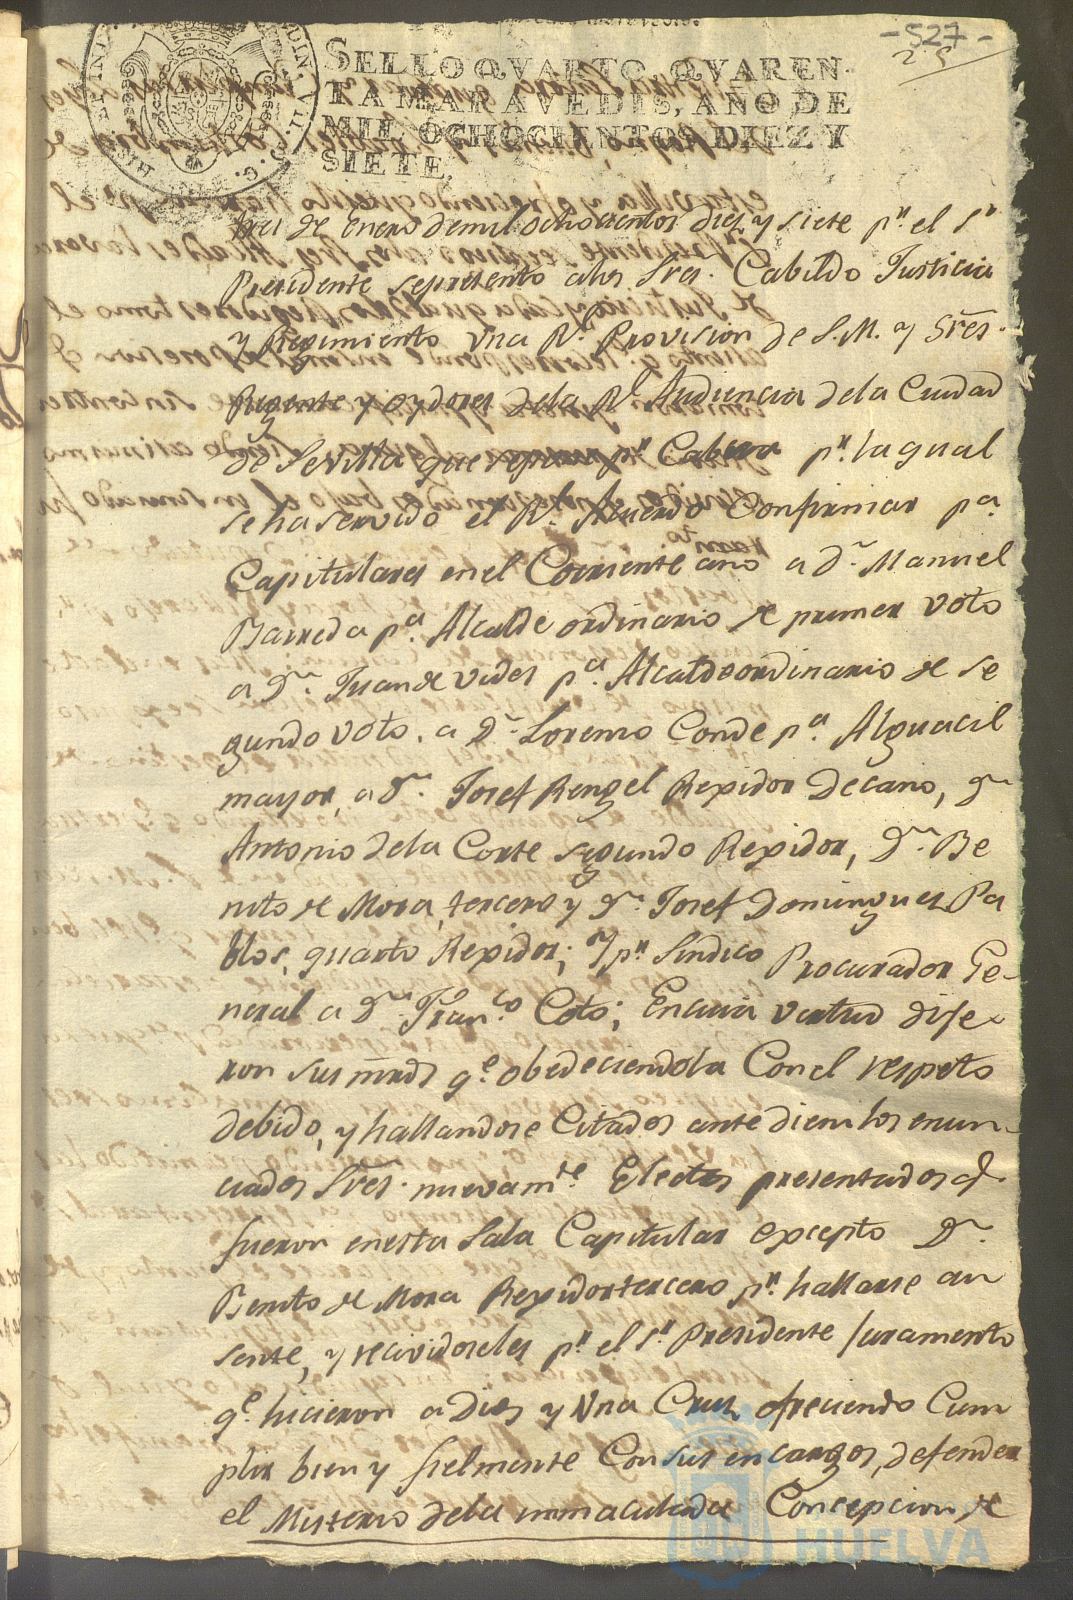 -527-
SELLO QVARTO, QVAREN-
TA MARAVEDIS, AÑO DE
MIL OCHOCIENTOS DIEZ Y
SIETE.
tres de Enero demil ochocientos diez y siete pr. el Sr.
Presidente sepresento alos Sres. Cabildo Justicia
y Regimiento vna Rl. Provision de S.M. y Sres.
Regente y oydores dela Rl. Audiencia dela Ciudad
de Sevilla que pr. Cabeza pr. la qual
se ha servido el Rl. Acuerdo Confirmar pa.
Capitulares en el Corriente año a Dn. Manuel
Barreda pa. Alcalde ordinario de primer voto
a Dn. Juan de Vides pa. Alcalde ordinario de se
gundo voto. a Dn. Lorenso Conde pa. Alguacil
mayor, a Dn. Josef Rengel Rexidor Decano, Dn.
Antonio dela Corte segundo Rexidor, Dn. Be
nito de Mora, tercero y Dn. Josef Dominguez Pa
blos, quarto Rexidor; y pr. Sindico Procurador Ge-
neral a Dn. Franco. Coto; Encuia vertud dije
ron sus mrds qe. obedeciendola Con el respeto
debido, y hallandose Citados ante diem los enun-
ciados Sres. nuevamte. Electos presentados q.
fueron enesta Sala Capitular excepto Dn.
Benito de Mora Rexidor tercero pr. hallarse au
sente, y recividoseles pr. el Sr. Presidente Juramento
qe. hicieron a Dios y Vna Cruz ofreciendo Cum
plir bien y fielmente Con sus encargos, defender
el Misterio dela immaculada Concepcion de
HUELVA